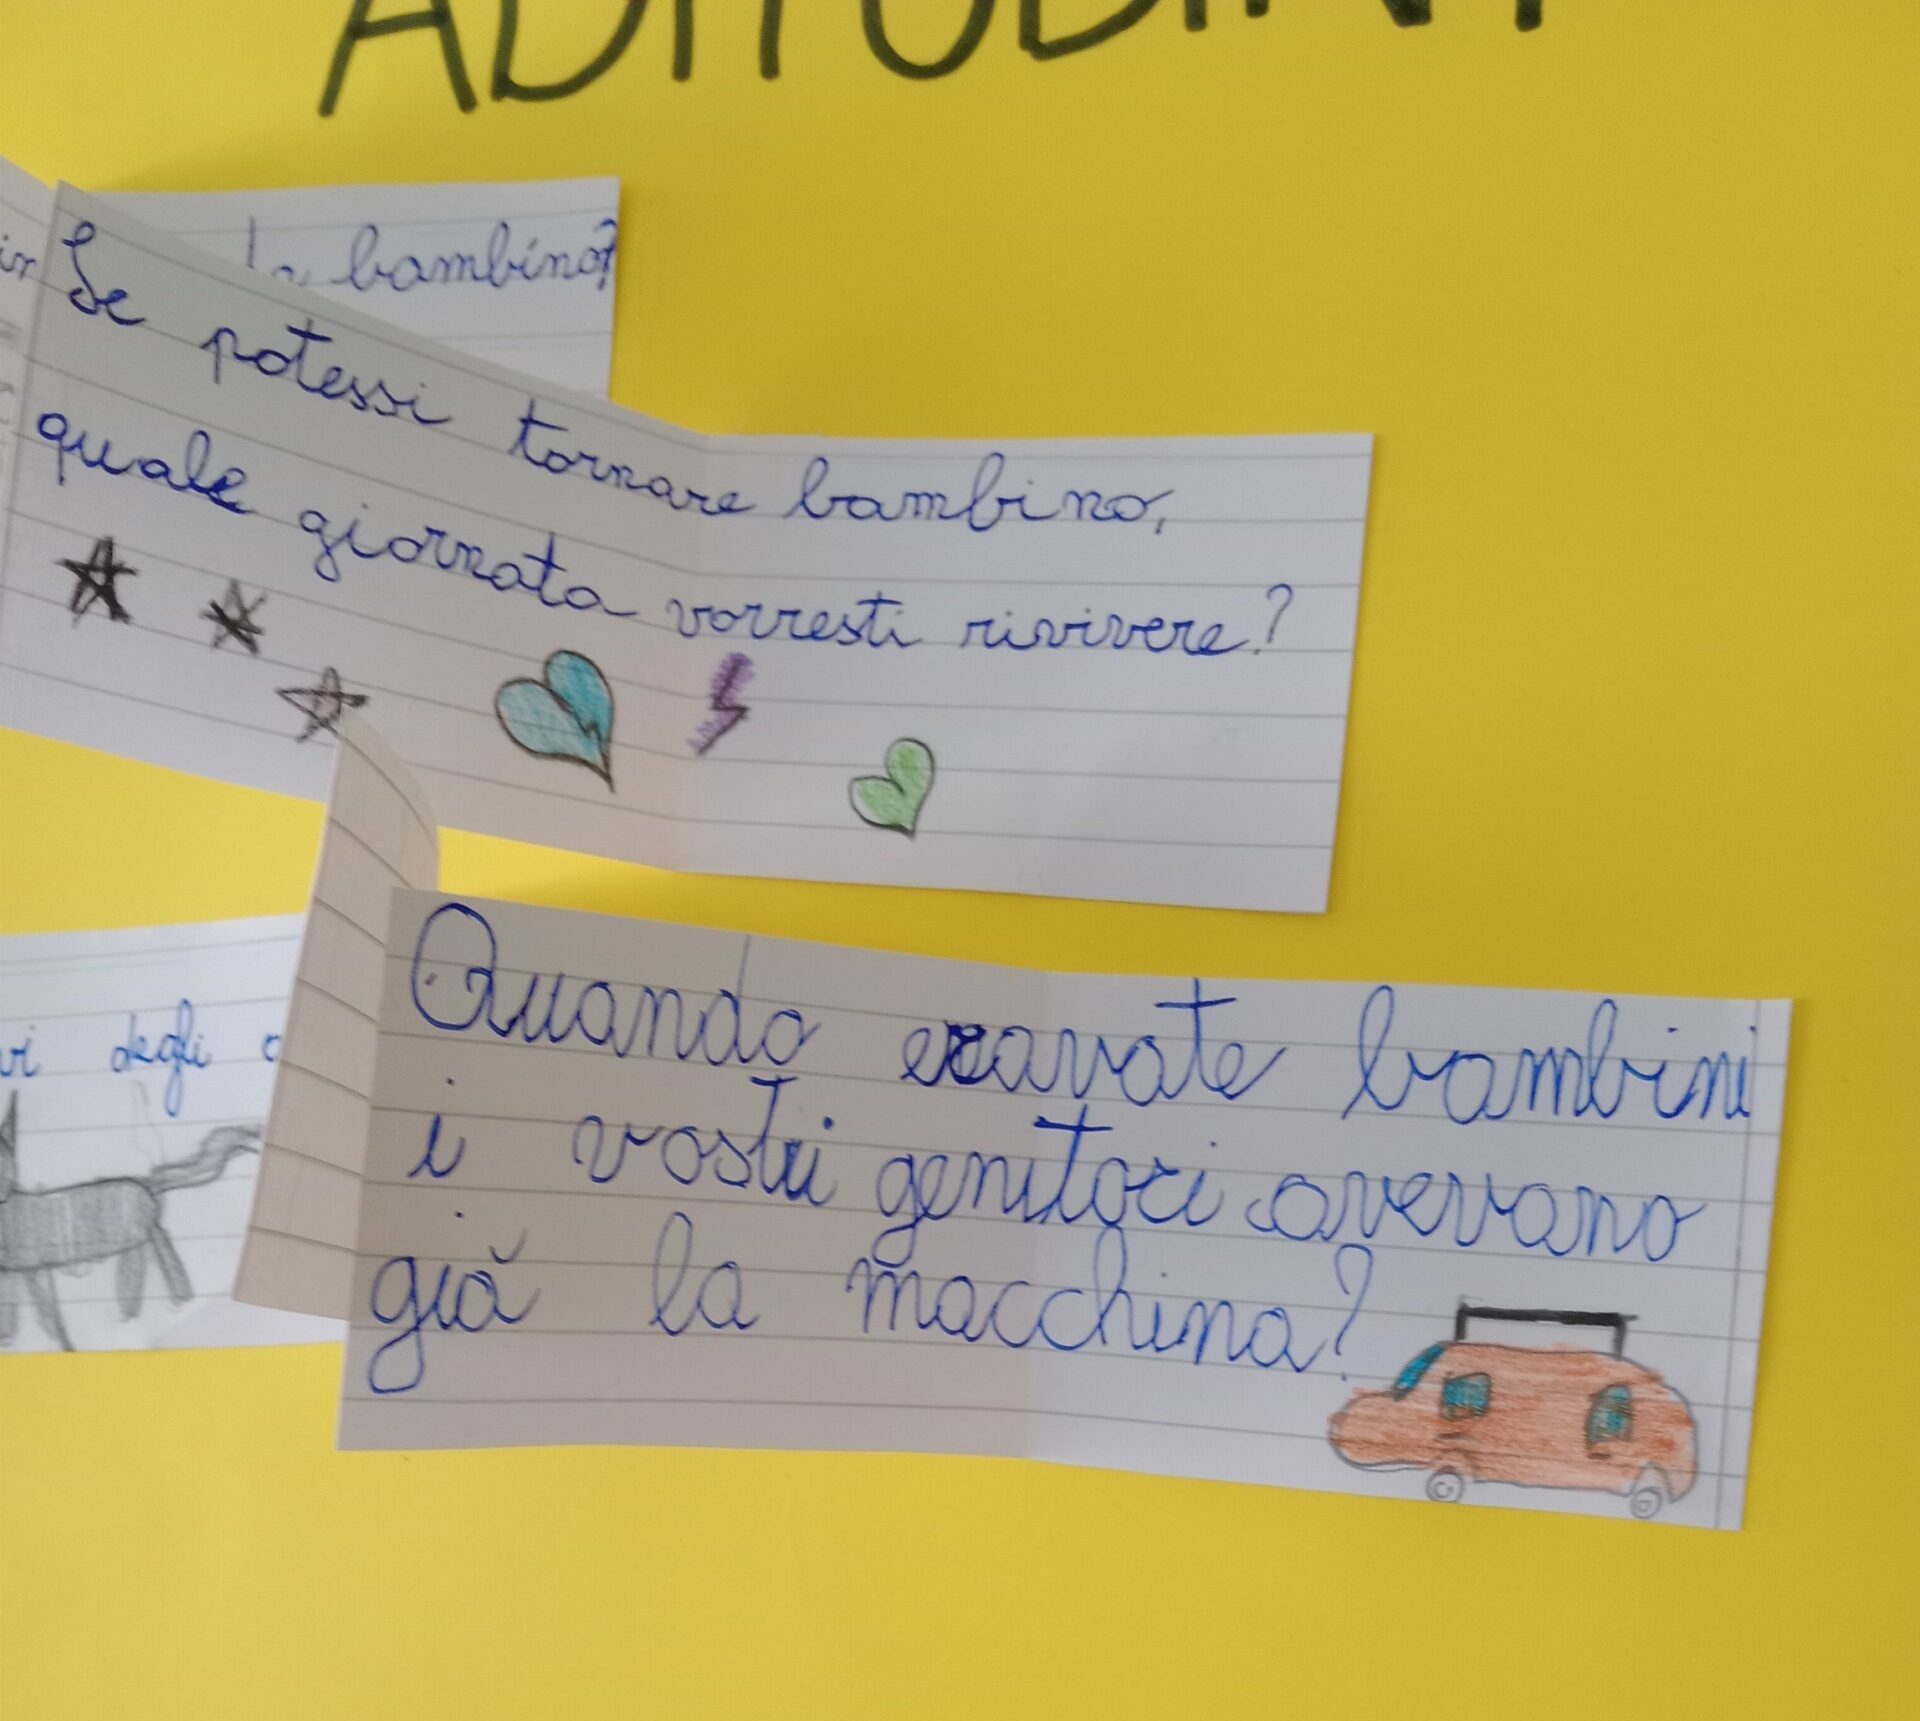 bambino?
Se potessi tornare bambino,
quale giornata vorresti rivivere?
degli
Quando eravate bambini
i vostri genitori avevano
già la macchina?